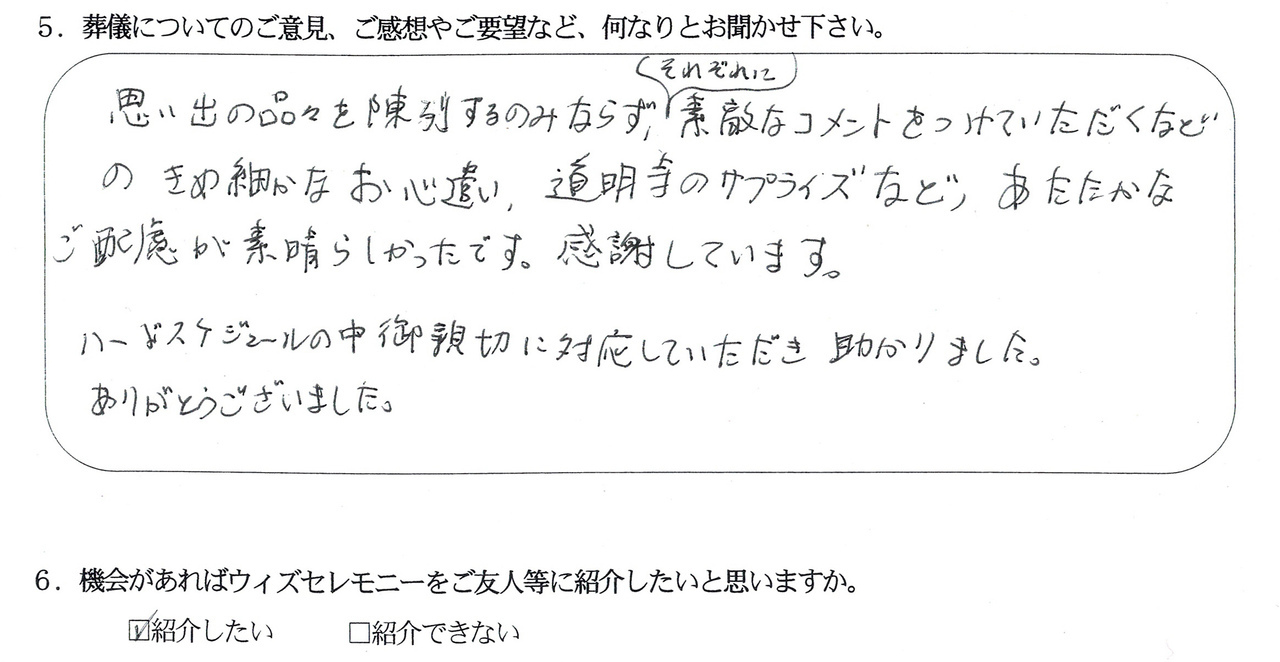 5．葬儀についてのご意見、ご感想やご要望など、何なりとお聞かせ下さい。
それぞれに
思い出の品々を陳列するのみならず、素敵なコメントをつけていただくなど
の きめ細かなお心遣い、道明寺のサプライズなど、あたたかな
ご配慮が素晴らしかったです。感謝しています。
ハードスケジュールの中御親切に対応していただき 助かりました。
ありがとうございました。
6．機会があればウィズセレモニーをご友人等に紹介したいと思いますか。
☑紹介したい　□紹介できない